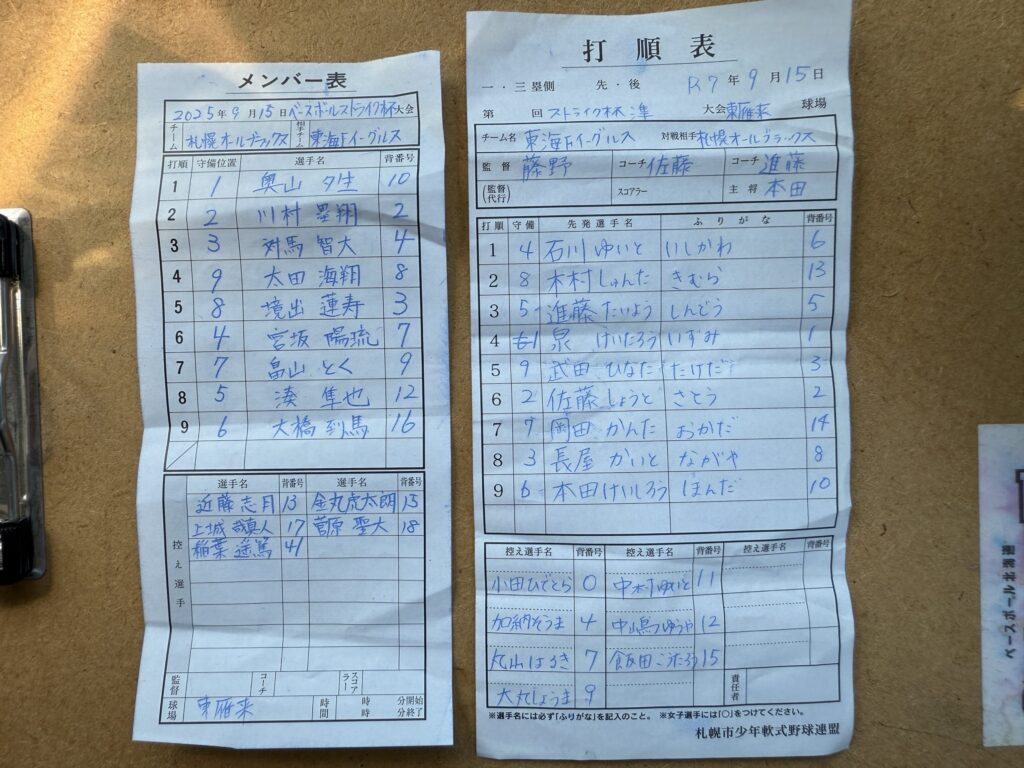 メンバー表
2025年9月15日ベースボールストライク杯大会
チーム 札幌オールブラックス 相手チーム 東海Fイーグルス
打順 守備位置 選手名 背番号
1 1 奥山 夕生 10
2 2 川村 塁翔 2
3 3 対馬 智大 4
4 9 太田 海翔 8
5 8 境出 蓮寿 3
6 4 宮坂 陽琉 7
7 7 畠山 とく 9
8 5 湊 隼也 12
9 6 大橋 到馬 16
控え選手
選手名 背番号 選手名 背番号
近藤 志月 13 金丸虎太朗 15
上城 真人 17 菅原 聖大 18
稲葉 遥篤 41
監督 コーチ スコアラー
球場 東雁来 時間 時 分開始
時 分終了
打順表
一・三塁側 先・後 R7年9月15日
第 回ストライク杯 準 大会 東雁来 球場
チーム名 東海Fイーグルス 対戦相手 札幌オールブラックス
監督 藤野 コーチ 佐藤 コーチ 進藤
(監督代行) スコアラー 主将 本田
打順 守備 先発選手名 ふりがな 背番号
1 4 石川 ゆいと いしかわ 6
2 8 木村しゅんた きむら 13
3 5 進藤たいよう しんどう 5
4 1 泉 けいたろう いずみ 1
5 9 武田 ひなた たけだ 3
6 2 佐藤しょうど さとう 2
7 7 岡田 かんた おかだ 14
8 3 長屋 かいと ながや 8
9 6 本田けいしろう ほんだ 10
控え選手名 背番号 控え選手名 背番号 控え選手名 背番号
小田ひでとら 0 中村ゆいと 11
加納そうま 4 中嶋つゆうや 12
丸山はるき 7 飯田こたろう 15
大丸しょうま 9
責任者
※選手名には必ず「ふりがな」を記入のこと。 ※女子選手には「〇」をつけてください。
札幌市少年軟式野球連盟
ベースボール北海道